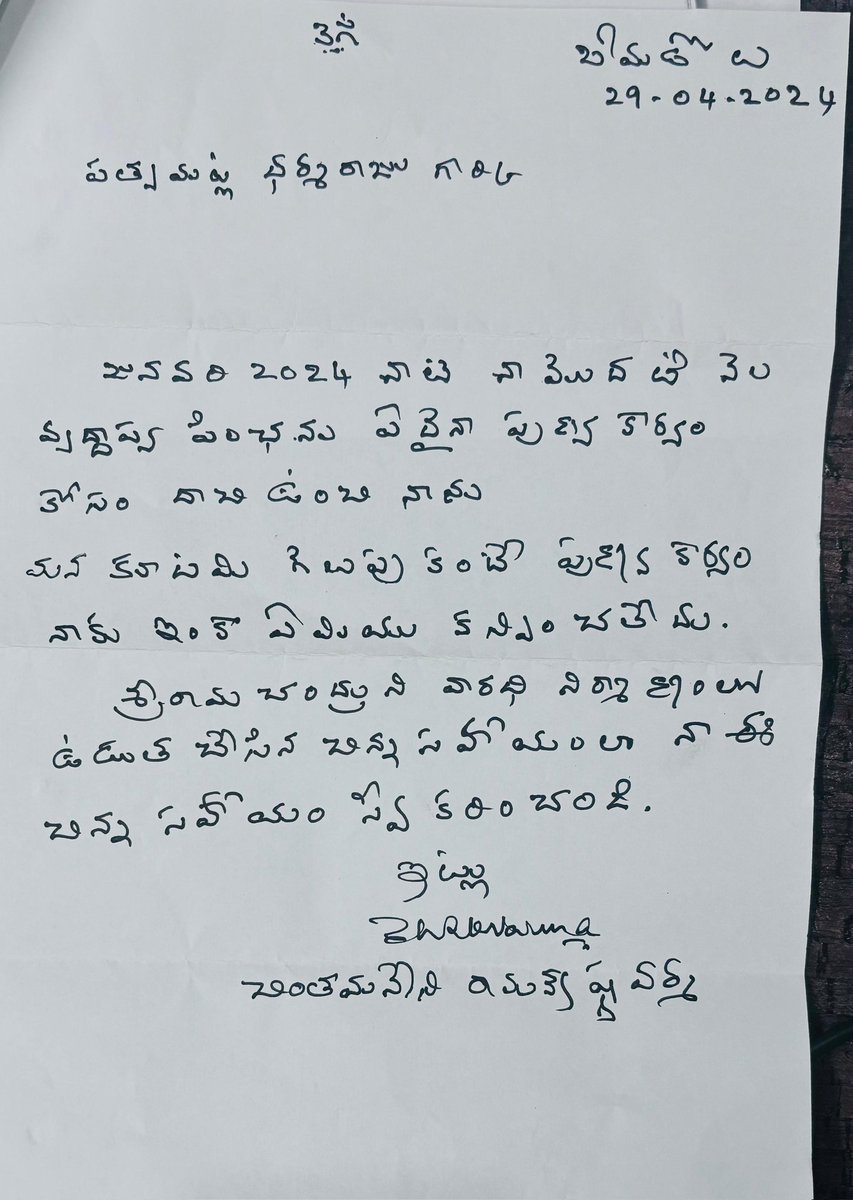 భీమడోలు
29-04-2024
పత్సమట్ల ధర్మరాజు గారికి
జనవరి 2024 నాటి నా మొదటి నెల
వృద్దాప్య పింఛను ఏదైనా పుణ్య కార్యం
కోసం దాచి ఉంచి నాను
మన కూటమి గెలుపు కంటే పుణ్య కార్యం
నాకు ఇంకా ఏమియు కన్పించలేదు.
శ్రీరామ చంద్రుని వారధి నిర్మాణంలో
ఉడుత చేసిన చిన్న సహాయంలా నా ఈ
చిన్న సహాయం స్వీకరించండి.
ఇట్లు
చింతమనేని రామకృష్ణ వర్మ